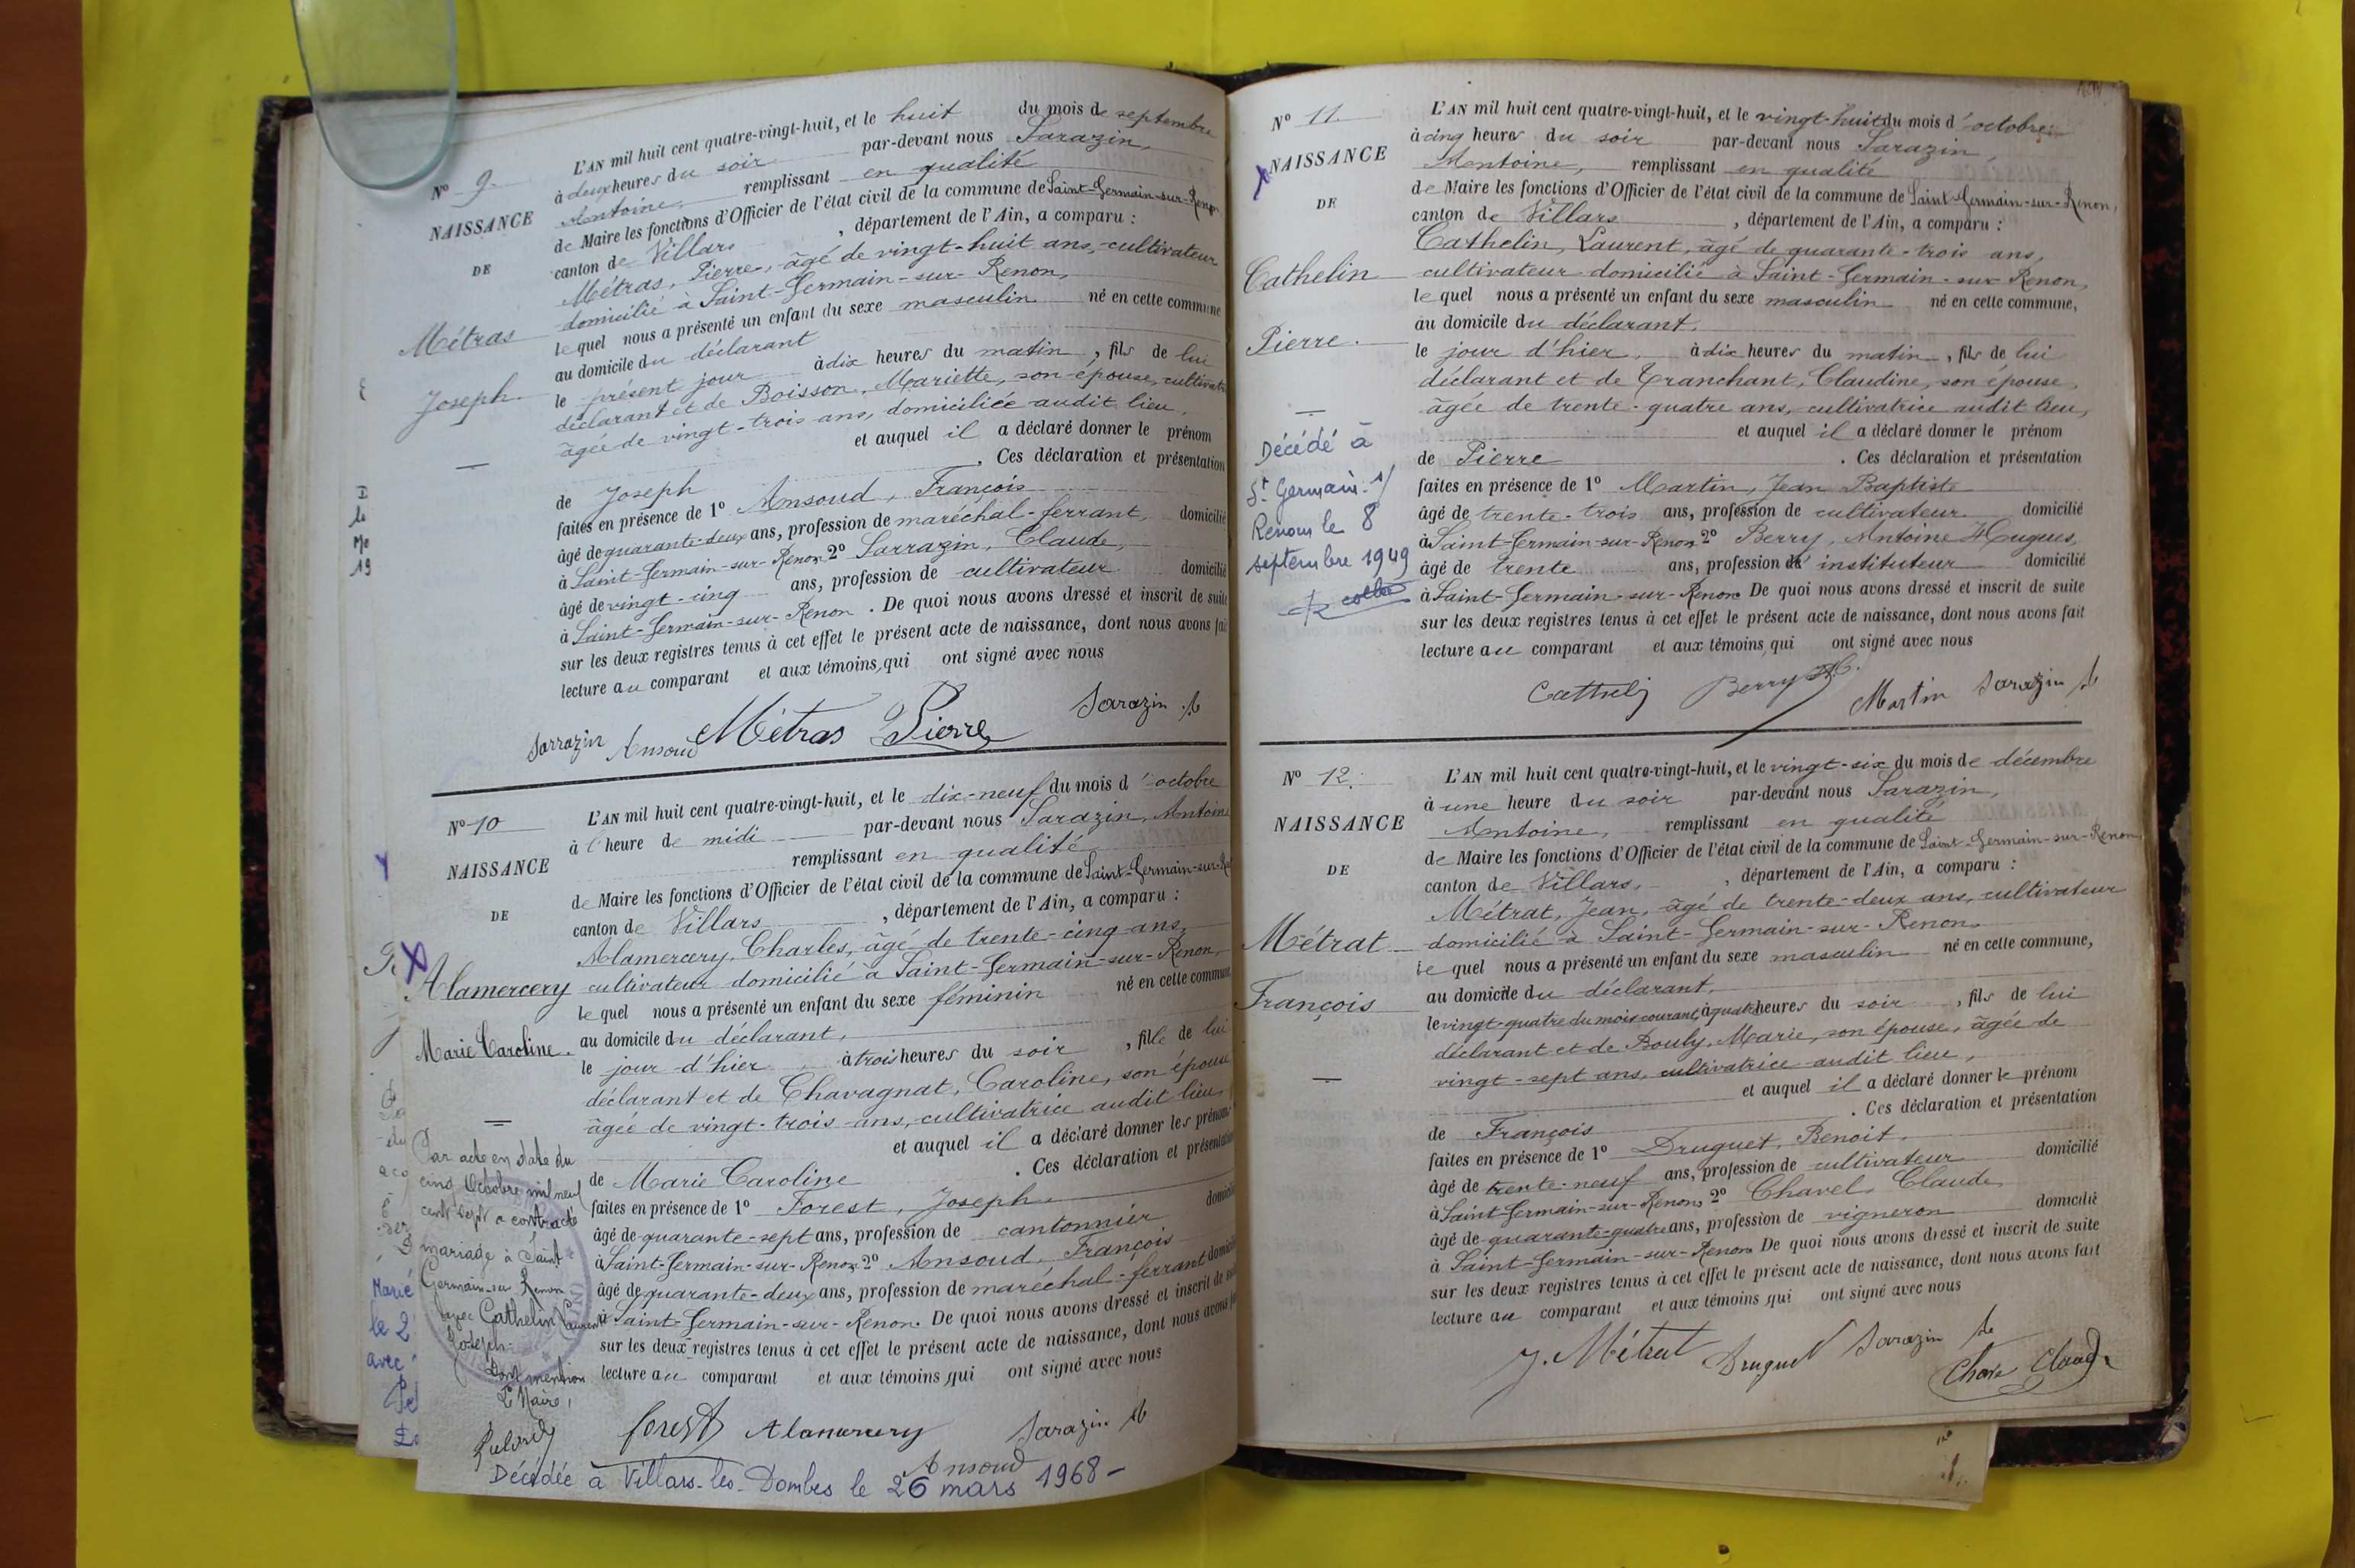 N° 9.
NAISSANCE
DE
Métras
Joseph.
L'AN mil huit cent quatre-vingt-huit, et le huit du mois de septembre
à deux heures du soir par-devant nous Sarazin,
Antoine, remplissant en qualité
de Maire les fonctions d'Officier de l'état civil de la commune de Saint-Germain-sur-Renon,
canton de Villars, département de l'Ain, a comparu :
Métras, Pierre, âgé de vingt-huit ans, cultivateur
domicilié à Saint-Germain-sur-Renon,
lequel nous a présenté un enfant du sexe masculin né en cette commune
au domicile du déclarant
le présent jour à dix heures du matin, fils de lui
déclarant et de Boisson, Mariette, son épouse, cultivat
âgée de vingt-trois ans, domiciliée audit lieu,
et auquel il a déclaré donner le prénom
de Joseph. Ces déclaration et présentation
faites en présence de 1° Ansoud, François
âgé de quarante-deux ans, profession de maréchal-ferrant, domicilié
à Saint-Germain-sur-Renon 2° Sarrazin, Claude,
âgé de vingt-cinq ans, profession de cultivateur domicilié
à Saint-Germain-sur-Renon. De quoi nous avons dressé et inscrit de suite
sur les deux registres tenus à cet effet le présent acte de naissance, dont nous avons fait
lecture au comparant et aux témoins, qui ont signé avec nous
Sarrazin Ansoud Métras Pierre Sarazin A
N° 10
NAISSANCE
DE
Alamercery
Marie Caroline.
L'AN mil huit cent quatre-vingt-huit, et le dix-neuf du mois d'octobre
à l'heure de midi par-devant nous Sarazin, Antoine
remplissant en qualité
de Maire les fonctions d'Officier de l'état civil de la commune de Saint-Germain-sur-Ren
canton de Villars, département de l'Ain, a comparu :
Alamercery, Charles, âgé de trente-cinq ans,
cultivateur domicilié à Saint-Germain-sur-Renon,
lequel nous a présenté un enfant du sexe féminin né en cette commune
au domicile du déclarant,
le jour d'hier à trois heures du soir, fille de lui
déclarant et de Chavagnat, Caroline, son épouse
âgée de vingt-trois ans, cultivatrice audit lieu,
et auquel il a déclaré donner les prénoms
de Marie Caroline. Ces déclaration et présentation
faites en présence de 1° Forest, Joseph
âgé de quarante-sept ans, profession de cantonnier domicilié
à Saint-Germain-sur-Renon 2° Ansoud, François
âgé de quarante-deux ans, profession de maréchal-ferrant domicilié
à Saint-Germain-sur-Renon. De quoi nous avons dressé et inscrit de suite
sur les deux registres tenus à cet effet le présent acte de naissance, dont nous avons fait
lecture au comparant et aux témoins, qui ont signé avec nous
Par acte en date du
cinq Octobre mil neuf
cent sept a contracté
mariage à Saint
Germain-sur Renon
avec Cathelin Laurent
Joseph.
Dont mention
Le Maire,
Forest Alamercery Sarazin A
Ansoud
Décédée à Villars-les-Dombes le 26 mars 1968 -
Marié
le 2
avec
N° 11.
NAISSANCE
DE
Cathelin
Pierre.
Décédé à
St Germain s/
Renon le 8
septembre 1949
L'AN mil huit cent quatre-vingt-huit, et le vingt-huit du mois d'octobre
à cinq heures du soir par-devant nous Sarazin,
Antoine, remplissant en qualité
de Maire les fonctions d'Officier de l'état civil de la commune de Saint-Germain-sur-Renon,
canton de Villars, département de l'Ain, a comparu :
Cathelin, Laurent, âgé de quarante-trois ans,
cultivateur domicilié à Saint-Germain-sur-Renon,
lequel nous a présenté un enfant du sexe masculin né en cette commune,
au domicile du déclarant.
le jour d'hier, à dix heures du matin, fils de lui
déclarant et de Tranchant, Claudine, son épouse,
âgée de trente-quatre ans, cultivatrice audit lieu,
et auquel il a déclaré donner le prénom
de Pierre. Ces déclaration et présentation
faites en présence de 1° Martin, Jean Baptiste
âgé de trente-trois ans, profession de cultivateur domicilié
à Saint-Germain-sur-Renon 2° Berry, Antoine Hugues,
âgé de trente ans, profession d'instituteur domicilié
à Saint-Germain-sur-Renon De quoi nous avons dressé et inscrit de suite
sur les deux registres tenus à cet effet le présent acte de naissance, dont nous avons fait
lecture au comparant et aux témoins, qui ont signé avec nous
Berry Martin Sarazin A
N° 12.
NAISSANCE
DE
Métrat
François
L'AN mil huit cent quatre-vingt-huit, et le vingt-six du mois de décembre
à une heure du soir par-devant nous Sarazin,
Antoine, remplissant en qualité
de Maire les fonctions d'Officier de l'état civil de la commune de Saint-Germain-sur-Renon
canton de Villars, département de l'Ain, a comparu :
Métrat, Jean, âgé de trente-deux ans, cultivateur
domicilié à Saint-Germain-sur-Renon
lequel nous a présenté un enfant du sexe masculin né en cette commune,
au domicile du déclarant.
le vingt-quatre du mois courant, à quatre heures du soir, fils de lui
déclarant et de Bouly, Marie, son épouse, âgée de
vingt-sept ans, cultivatrice audit lieu,
et auquel il a déclaré donner le prénom
de François. Ces déclaration et présentation
faites en présence de 1° Druguet, Benoit,
âgé de trente-neuf ans, profession de cultivateur domicilié
à Saint-Germain-sur-Renon 2° Chavel, Claude,
âgé de quarante-quatre ans, profession de vigneron domicilié
à Saint-Germain-sur-Renon De quoi nous avons dressé et inscrit de suite
sur les deux registres tenus à cet effet le présent acte de naissance, dont nous avons fait
lecture au comparant et aux témoins qui ont signé avec nous
J. Métrat Druguet Sarazin A